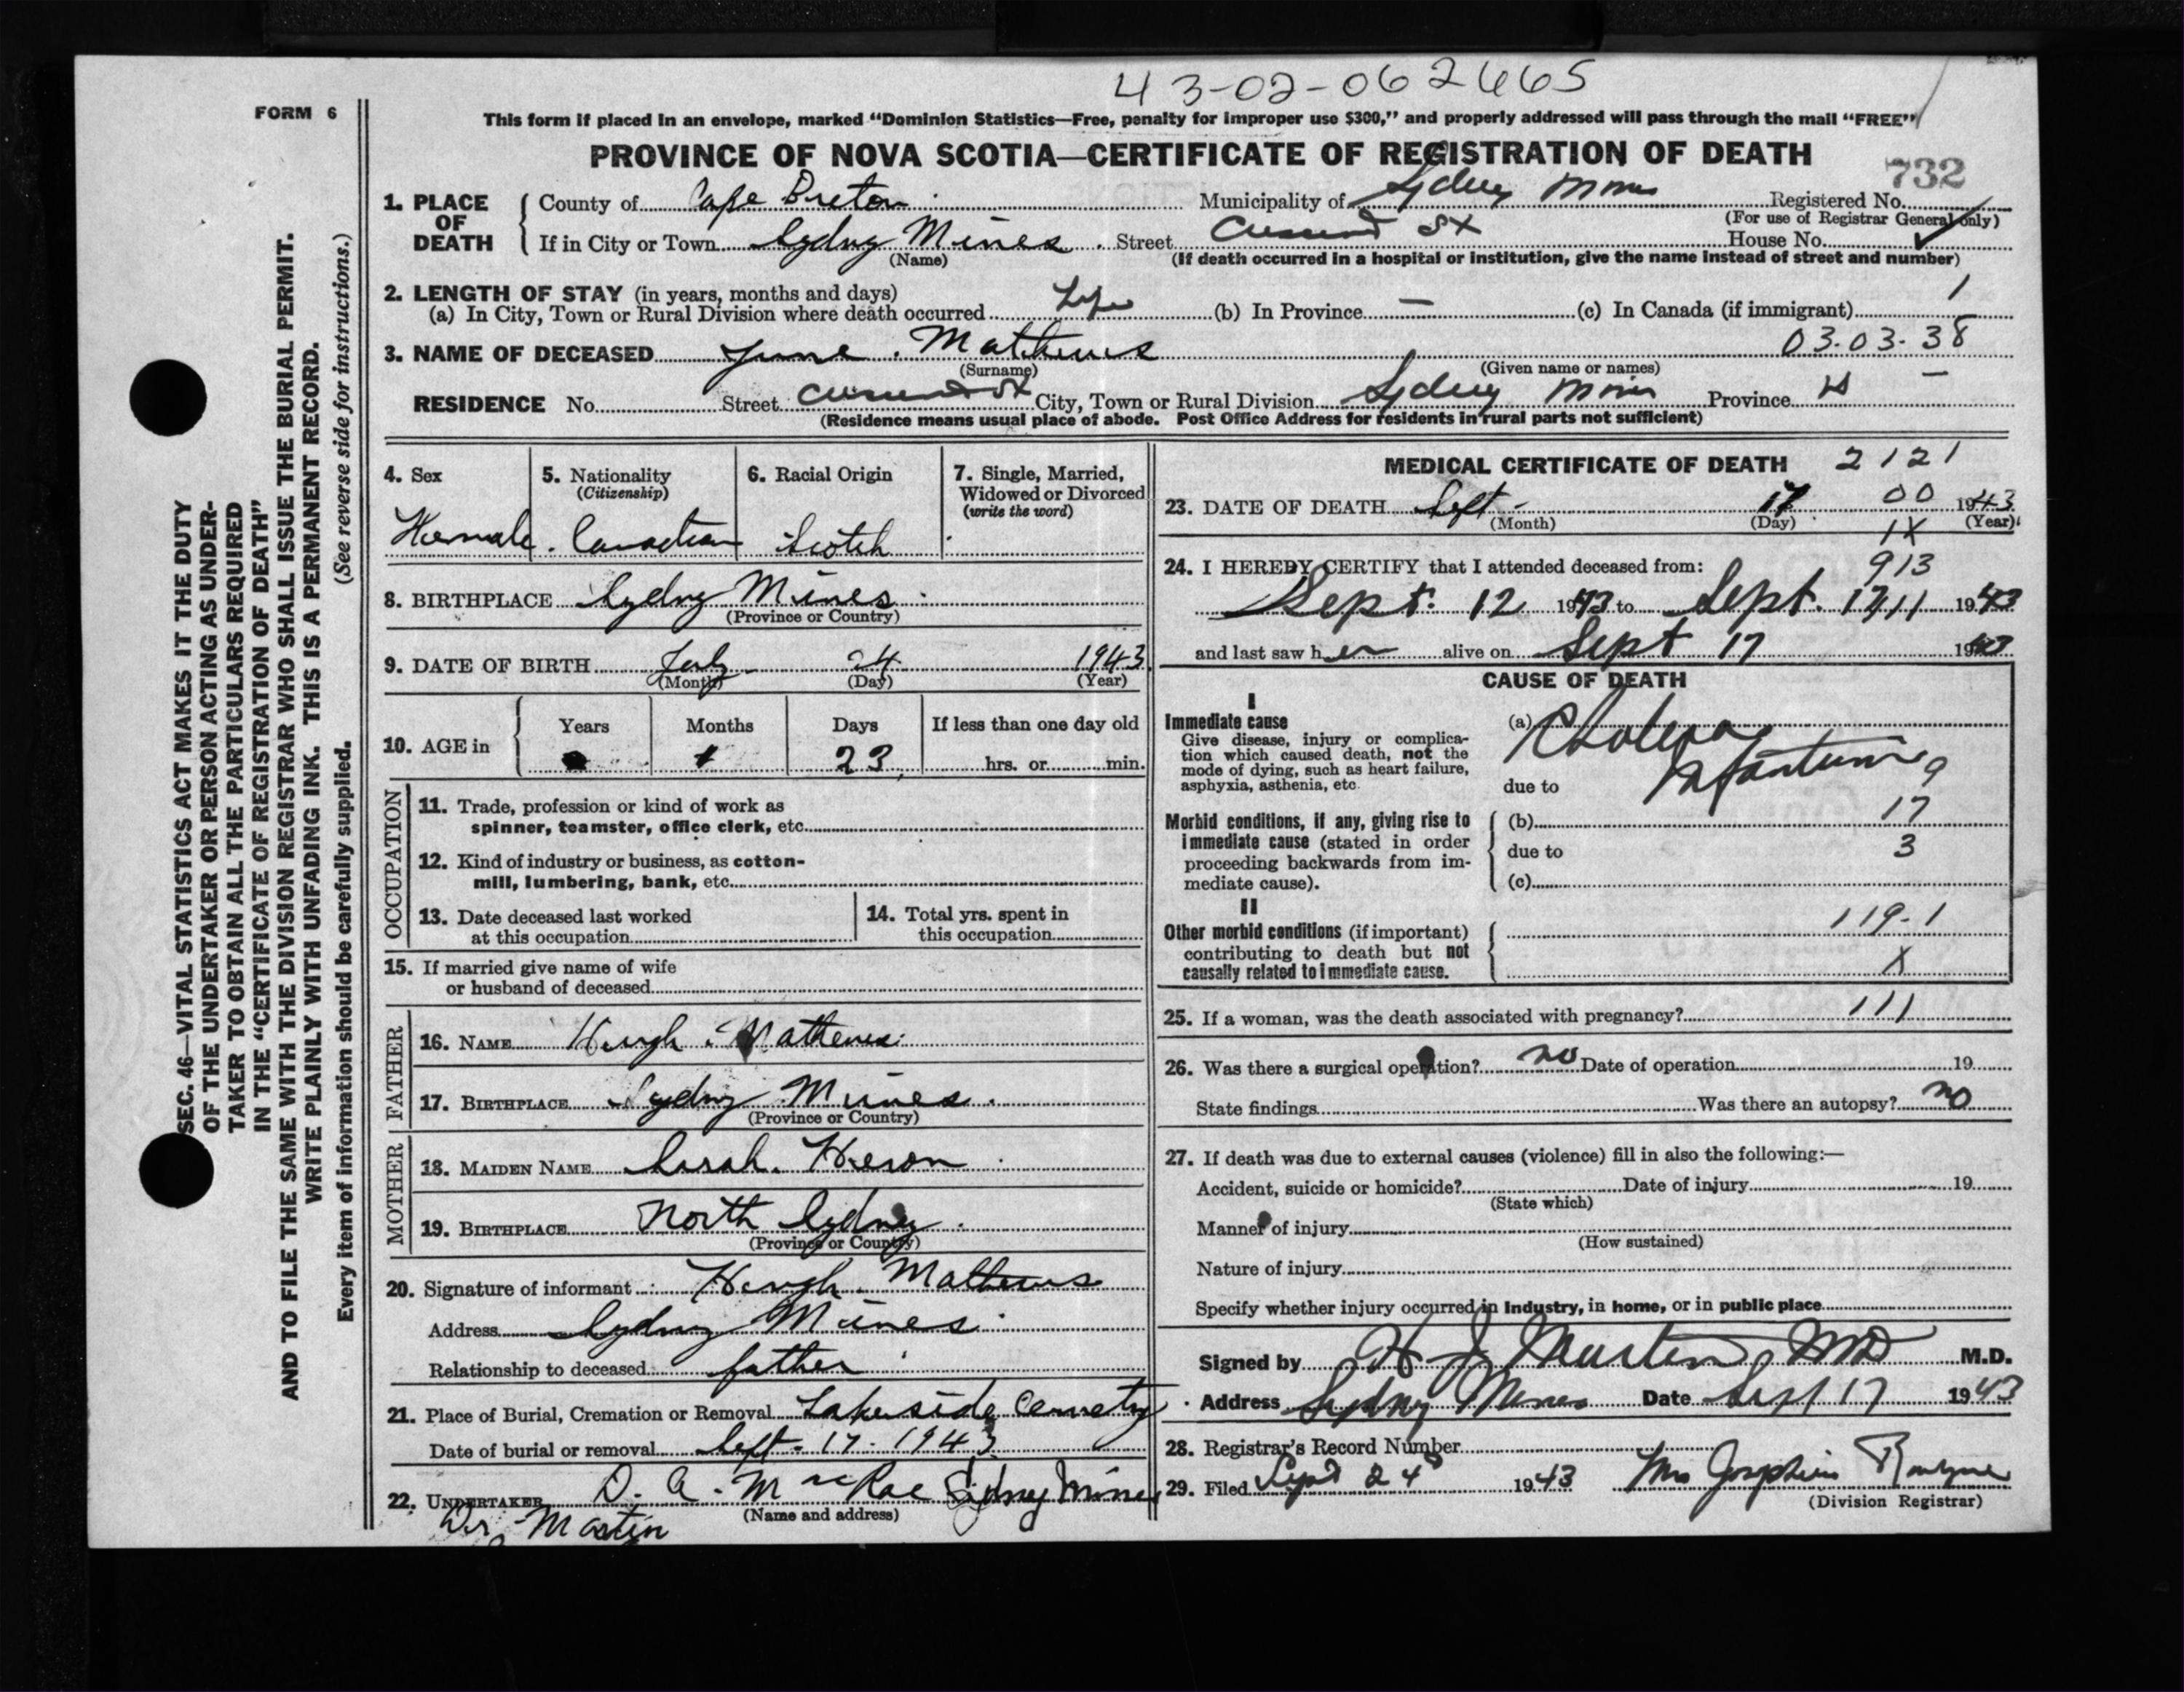 43-02-062665
FORM 6
This form if placed in an envelope, marked "Dominion Statistics—Free, penalty for improper use $300," and properly addressed will pass through the mail "FREE"
PROVINCE OF NOVA SCOTIA—CERTIFICATE OF REGISTRATION OF DEATH
732
1. PLACE OF DEATH County of Cape Breton Municipality of Sydney Mines Registered No.
(For use of Registrar General only)
If in City or Town Sydney Mines Street St House No.
(Name) (If death occurred in a hospital or institution, give the name instead of street and number)
2. LENGTH OF STAY (in years, months and days)
(a) In City, Town or Rural Division where death occurred Life (b) In Province — (c) In Canada (if immigrant) 1
3. NAME OF DECEASED June Mathews 03-03-38
(Surname) (Given name or names)
RESIDENCE No. Street St City, Town or Rural Division Sydney Mines Province
(Residence means usual place of abode. Post Office Address for residents in rural parts not sufficient)
SEC. 46—VITAL STATISTICS ACT MAKES IT THE DUTY
OF THE UNDERTAKER OR PERSON ACTING AS UNDER-
TAKER TO OBTAIN ALL THE PARTICULARS REQUIRED
IN THE "CERTIFICATE OF REGISTRATION OF DEATH"
AND TO FILE THE SAME WITH THE DIVISION REGISTRAR WHO SHALL ISSUE THE BURIAL PERMIT.
WRITE PLAINLY WITH UNFADING INK. THIS IS A PERMANENT RECORD.
Every item of information should be carefully supplied. (See reverse side for instructions.)
4. Sex 5. Nationality 6. Racial Origin 7. Single, Married,
(Citizenship) Widowed or Divorced
(write the word)
Female Canadian Scotch
8. BIRTHPLACE Sydney Mines
(Province or Country)
9. DATE OF BIRTH July 24 1943
(Month) (Day) (Year)
10. AGE in Years Months Days If less than one day old
1 23 hrs. or min.
OCCUPATION
11. Trade, profession or kind of work as
spinner, teamster, office clerk, etc.
12. Kind of industry or business, as cotton-
mill, lumbering, bank, etc.
13. Date deceased last worked
at this occupation
14. Total yrs. spent in
this occupation
15. If married give name of wife
or husband of deceased
FATHER
16. NAME Hugh Mathews
17. BIRTHPLACE Sydney Mines
(Province or Country)
MOTHER
18. MAIDEN NAME Sarah
19. BIRTHPLACE North Sydney
(Province or Country)
20. Signature of informant Hugh Mathews
Address Sydney Mines
Relationship to deceased father
21. Place of Burial, Cremation or Removal Lakeside Cemetry
Date of burial or removal Sept. 17. 1943
22. UNDERTAKER D. A. McRae Sydney Mines
(Name and address)
Dr. Martin
MEDICAL CERTIFICATE OF DEATH 2121
23. DATE OF DEATH Sept 17 00 1943
(Month) (Day) (Year)
1X
24. I HEREBY CERTIFY that I attended deceased from: 913
Sept. 12 1943 to Sept. 17 11 1943
and last saw her alive on Sept 17 1943
CAUSE OF DEATH
I
Immediate cause
Give disease, injury or complica-
tion which caused death, not the
mode of dying, such as heart failure,
asphyxia, asthenia, etc.
(a) Cholera
Infantum 9
due to
Morbid conditions, if any, giving rise to
immediate cause (stated in order
proceeding backwards from im-
mediate cause).
(b) 17
due to 3
(c)
II
Other morbid conditions (if important)
contributing to death but not
causally related to immediate cause.
119-1
X
25. If a woman, was the death associated with pregnancy? 111
26. Was there a surgical operation? no Date of operation 19
State findings Was there an autopsy? no
27. If death was due to external causes (violence) fill in also the following:—
Accident, suicide or homicide? Date of injury 19
(State which)
Manner of injury
(How sustained)
Nature of injury
Specify whether injury occurred in Industry, in home, or in public place
Signed by H J Martin, MD M.D.
Address Sydney Mines Date Sept 17 1943
28. Registrar's Record Number
29. Filed Sept 24 1943 Mrs Josephine
(Division Registrar)